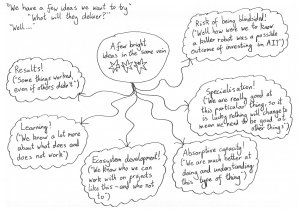 "We have a few ideas we want to try"
"What will they deliver?"
"Well...."
A few bright
ideas in the same vein
Risk of being blindsided!
("Well how were we to know
a killer robot was a possible
outcome of investing in AI?")
Results!
("Some things worked,
even if others didn't")
Specialisation!
(We are really good at
this particular thing, so it
is lucky nothing will change to
mean we need to be good at
other things")
Learning!
("We know a lot more
about what does and
does not work")
Ecosystem development!
("We know who we can
work with on projects
like this - and who not
to")
Absorptive capacity!
("We are much better at
doing and understanding
this type of thing")